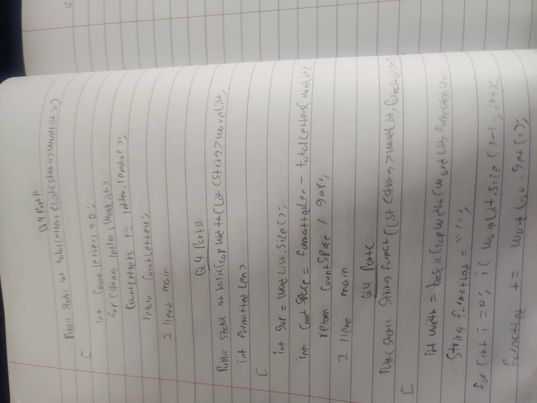 Q4 Part A
Public static int totalLetters (List<String> wordList)
{
int countLetters = 0;
for (String letter : wordList)
countLetters += letter.length();
return countLetters;
} //end main
Q4 Part B
Public static int basicGapWidth (List<String> wordList,
int formattedLen)
{
int gap = wordList.size();
int countSpace = formattedLen - totalLetters(wordList);
return countSpace / gap;
} //end main
Q4 Part C
Public static String format (List<String> wordList, formattedLen)
{
int width = basicGapWidth (wordList, formattedLen);
String formatted = "";
for (int i = 0; i < wordList.size()-1; i++)
formatted += wordList.get(i);